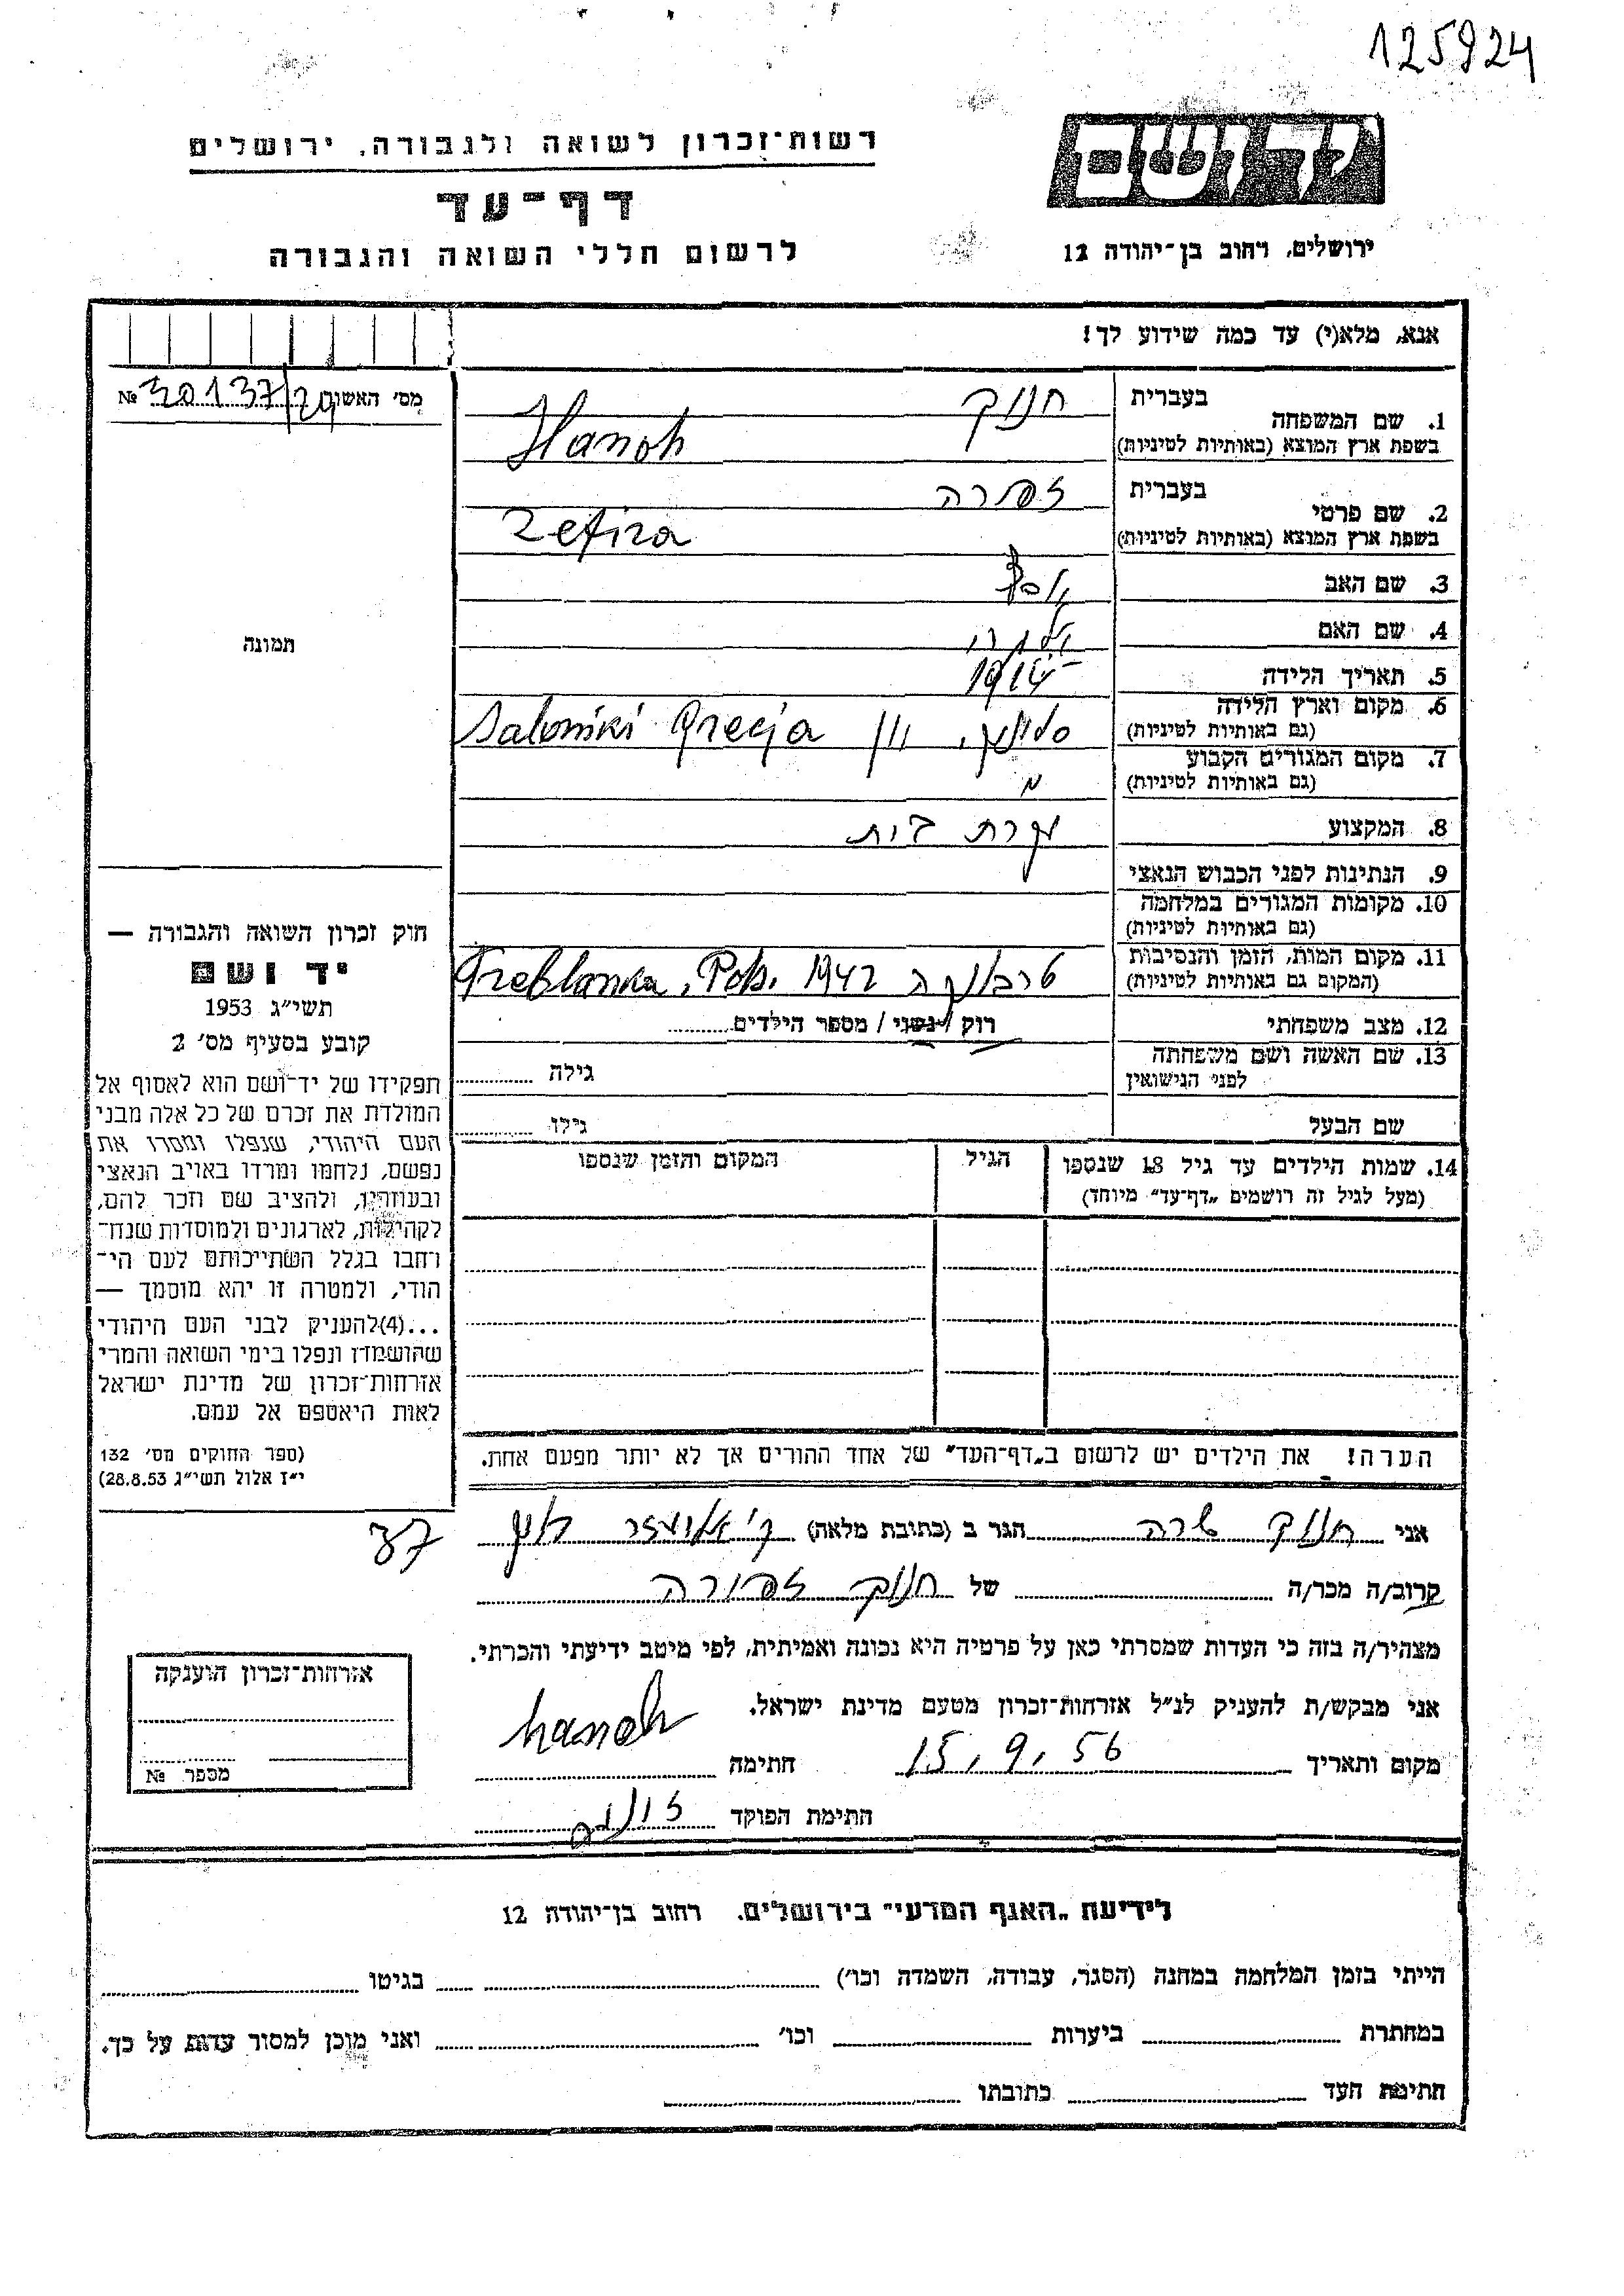 125924
רשות־זכרון לשואה ולגבורה, ירושלים
יד ושם
דף־עד
לרשום חללי השואה והגבורה
ירושלים, רחוב בן־יהודה 12
אנא, מלא(י) עד כמה שידוע לך!
מס' האשור 30137/29 №
1. שם המשפחה בעברית חנוך
בשפת ארץ המוצא (באותיות לטיניות) Hanoh
2. שם פרטי בעברית זפירה
בשפת ארץ המוצא (באותיות לטיניות) Zefira
3. שם האב
4. שם האם
5. תאריך הלידה 1914
6. מקום וארץ הלידה
(גם באותיות לטיניות) סלוניקי, יוון Saloniki Grecja
7. מקום המגורים הקבוע
(גם באותיות לטיניות)
8. המקצוע עקרת בית
9. הנתינות לפני הכבוש הנאצי
10. מקומות המגורים במלחמה
(גם באותיות לטיניות)
11. מקום המות, הזמן והנסיבות
(המקום גם באותיות לטיניות) טרבלנקה 1942 Treblanka, Pol.
12. מצב משפחתי רוק / נשוי / מספר הילדים
13. שם האשה ושם משפחתה
לפני הנישואין גילה
שם הבעל גילו
14. שמות הילדים עד גיל 18 שנספו הגיל המקום והזמן שנספו
(מעל לגיל זה רושמים „דף־עד” מיוחד)
הערה! את הילדים יש לרשום ב„דף־העד” של אחד ההורים אך לא יותר מפעם אחת.
תמונה
חוק זכרון השואה והגבורה —
יד ושם
תשי״ג 1953
קובע בסעיף מס' 2
תפקידו של יד־ושם הוא לאסוף אל
המולדת את זכרם של כל אלה מבני
העם היהודי, שנפלו ומסרו את
נפשם, נלחמו ומרדו באויב הנאצי
ובעוזריו, ולהציב שם וזכר להם,
לקהילות, לארגונים ולמוסדות שנח־
רחבו בגלל השתייכותם לעם הי־
הודי, ולמטרה זו יהא מוסמך —
...(4)להעניק לבני העם היהודי
שהושמדו ונפלו בימי השואה והמרי
אזרחות־זכרון של מדינת ישראל
לאות היאספם אל עמם.
(ספר החוקים מס' 132
י״ז אלול תשי״ג 28.8.53)
אני חנוך שרה הגר ב (כתובת מלאה) ק' אליעזר
37
קרוב/ה מכר/ה של חנוך זפורה
מצהיר/ה בזה כי העדות שמסרתי כאן על פרטיה היא נכונה ואמיתית, לפי מיטב ידיעתי והכרתי.
אני מבקש/ת להעניק לנ״ל אזרחות־זכרון מטעם מדינת ישראל.
מקום ותאריך 15.9.56 חתימה hanoh
חתימת הפוקד
אזרחות־זכרון הוענקה
מספר №
לידיעת „האגף המדעי” בירושלים. רחוב בן־יהודה 12
הייתי בזמן המלחמה במחנה (הסגר, עבודה, השמדה וכו') בגיטו
במחתרת ביערות וכו' ואני מוכן למסור עדות על כך.
חתימת העד כתובתו